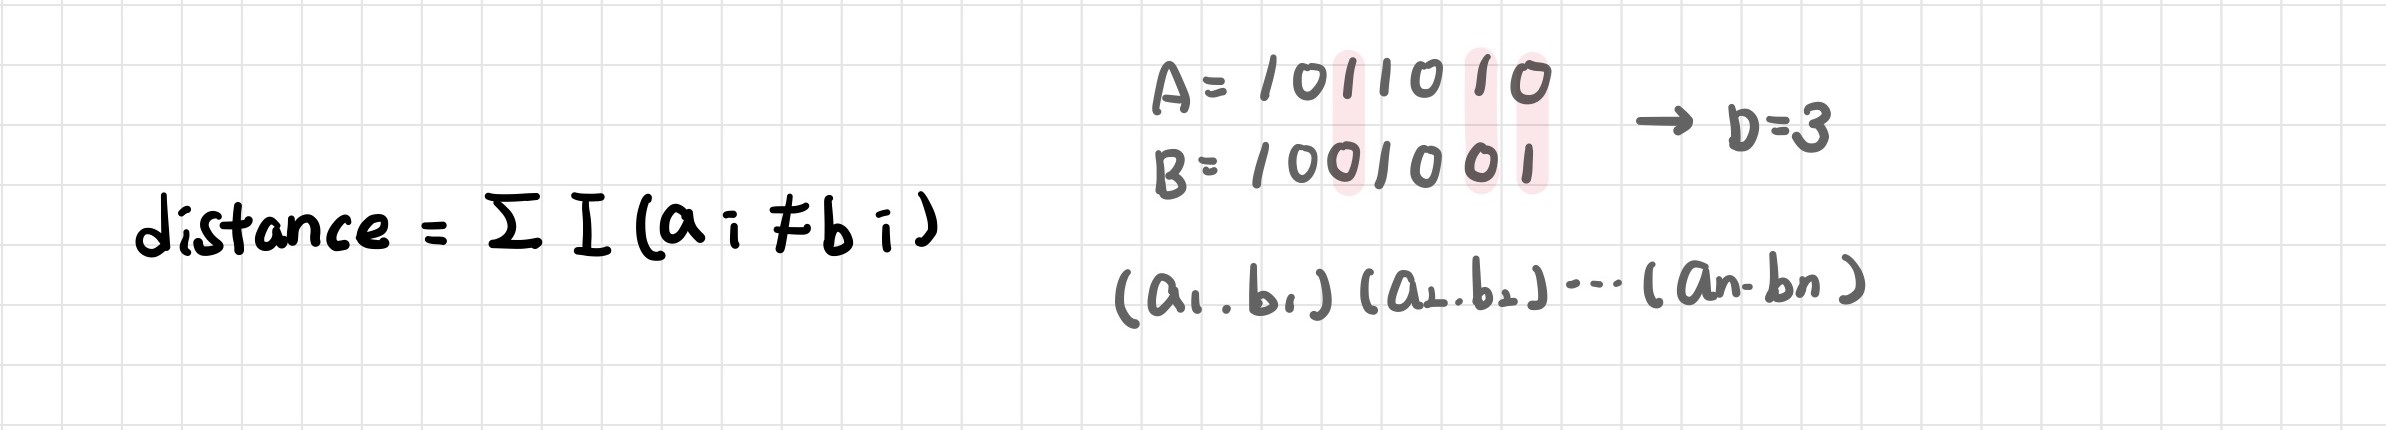 distance = Σ I (ai ≠ bi)
A = 1011010
B = 1001001
→ D=3
(a₁.b₁) (a₂.b₂) ··· (an.bn)